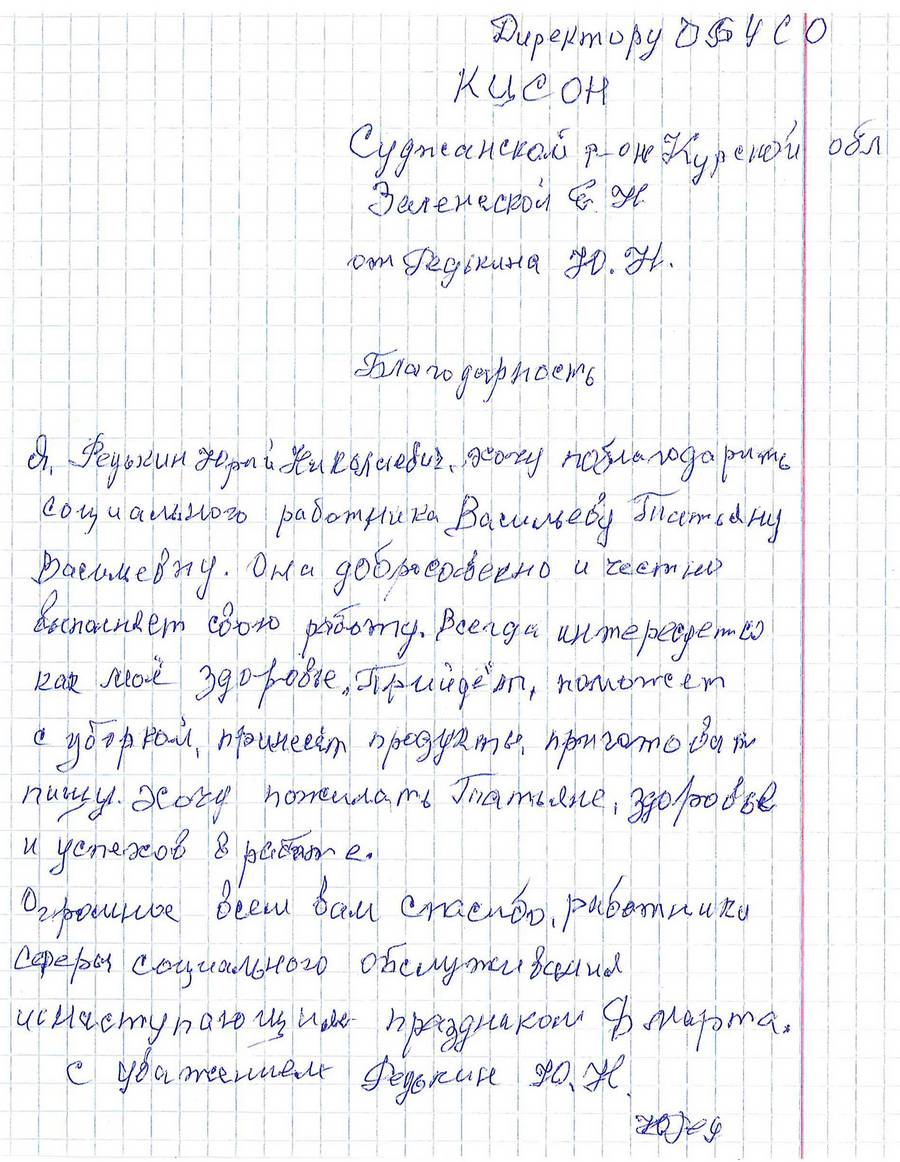 Директору ОБУСО
КЦСОН
Суджанской р-он Курской обл
Зеленской Е. Н.
от Редькина Ю. Н.
Благодарность
Я, Редькин Юрий Николаевич, хочу поблагодарить
социального работника Васильеву Татьяну
Васильевну. Она добросовесно и честно
выполняет свою работу. Всегда интересуется
как моё здоровье. Прийдёт, поможет
с уборкой, принесёт продукты, приготоват
пищу. Хочу пожилать Татьяне, здоровье
и успехов в работе.
Огромное всем вам спасибо, работники
сферы социального обслуживания
и с наступающим праздником 8 марта.
С уважением Редькин Ю. Н.